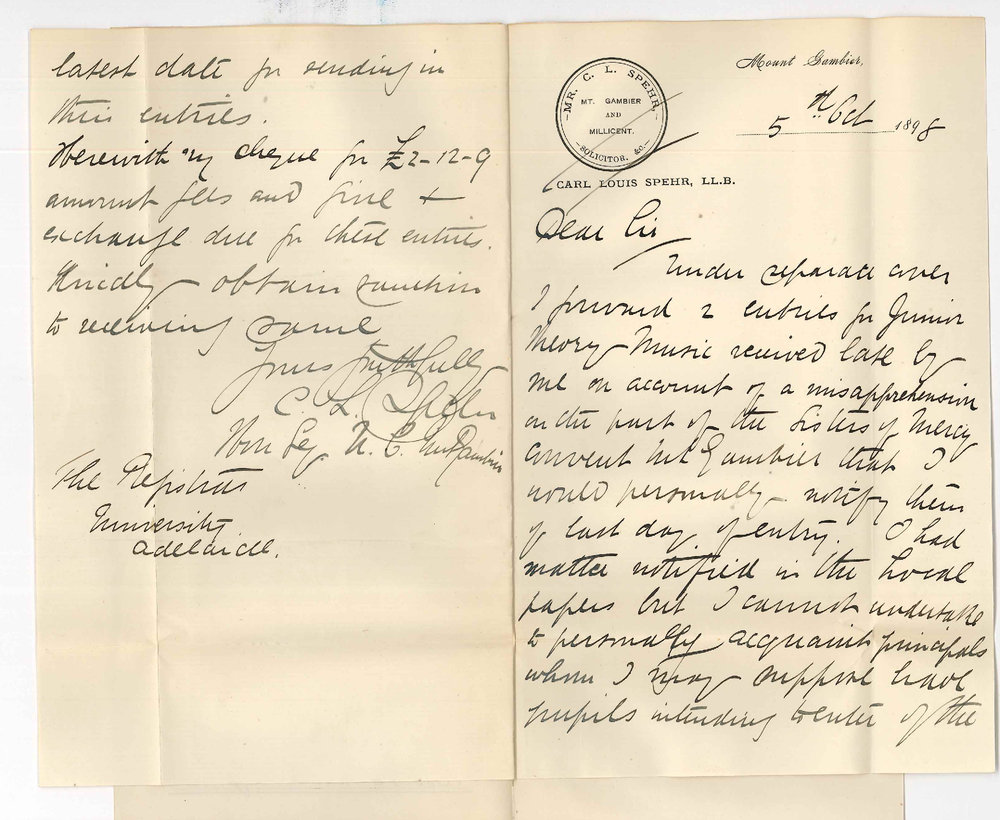 Mount Gambier,
MR. C. L. SPEHR,
MT. GAMBIER
AND
MILLICENT.
SOLICITOR, &c.
5th Oct 1898
CARL LOUIS SPEHR, LL.B.
Dear Sir
Under separate cover
I forward 2 entries for Junior
Theory Music received late by
me on account of a misapprehension
on the part of the Sisters of Mercy
Convent Mt Gambier that I
would personally notify them
of last day of entry. I had
matter notified in the Local
papers but I cannot undertake
to personally acquaint principals
whom I may suppose have
pupils intending to enter of the
latest date for sending in
their entries.
Herewith my cheque for £2-12-9
amount fees and fine +
exchange due for these entries.
Kindly obtain sanction
to receiving same
Yours faithfully
C. L. Spehr
Hon Sec U. C. Mt Gambier
The Registrar
University
Adelaide.